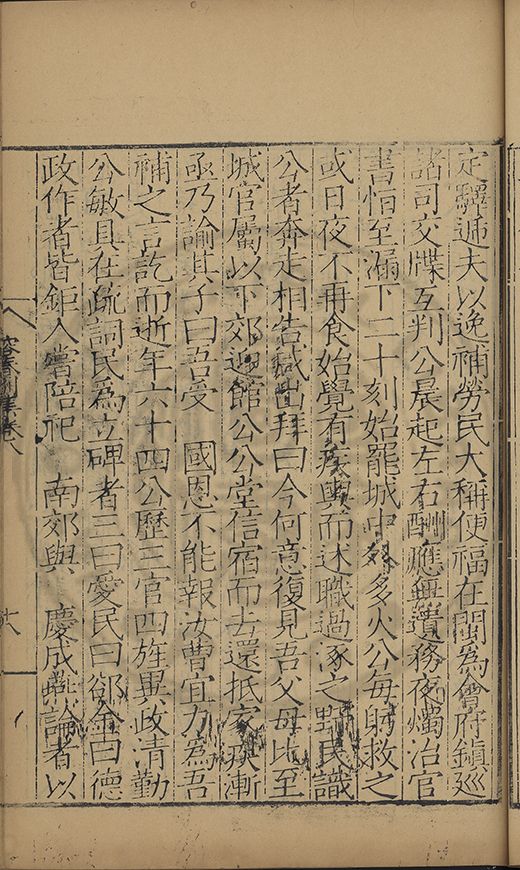 定驛逓夫以逸補勞民大稱便福在閩為會府鎮廵
諸司交牒互判公晨起左右酬應無遺務夜燭治官
書恒至漏下二十刻始罷城中多火公每躬救之
或日夜不再食始覺有疾輿而述職過涿之野民識
公者奔走相告輒出拜曰今何意復見吾父母比至
城官屬以下郊迎館公公堂信宿而去還抵家疾漸
亟乃諭其子曰吾受 國恩不能報汝曹宜力為吾
補之言訖而逝年六十四公歷三官四旌異政清勤
公敏具在疏詞民為立碑者三曰愛民曰郤金曰德
政作者皆鉅人嘗陪祀 南郊與 慶成論者以
卷八